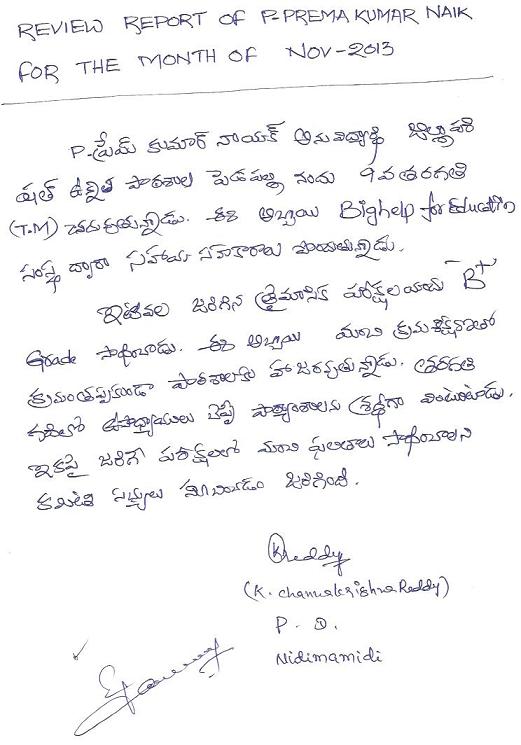 REVIEW REPORT OF P-PREMA KUMAR NAIK
FOR THE MONTH OF NOV-2013
P-ప్రేమ్ కుమార్ నాయక్ అను విద్యార్థి జిల్లా పరి
షత్ ఉన్నత పాఠశాల పెడపల్లి నందు 9వ తరగతి
(T.M) చదువుతున్నాడు. ఈ అబ్బాయి Bighelp for Education
సంస్థ ద్వారా సహాయ సహకారాలు పొందుతున్నాడు.
ఇటీవల జరిగిన త్రైమాసిక పరీక్షలయందు B+
Grade సాధించాడు. ఈ అబ్బాయి మంచి క్రమశిక్షణతో
క్రమంతప్పకుండా పాఠశాలకు హాజరవుతున్నాడు. తరగతి
గదిలో ఉపాధ్యాయులు చెప్పే పాఠ్యాంశాలను శ్రద్ధగా వింటుంటాడు.
ఇకపై జరిగే పరీక్షలలో మంచి ఫలితాలు సాధించాలని
కమిటీ సభ్యులు సూచించడం జరిగింది.
KReddy
(K. channakrishna Reddy)
P. D.
Nidimamidi